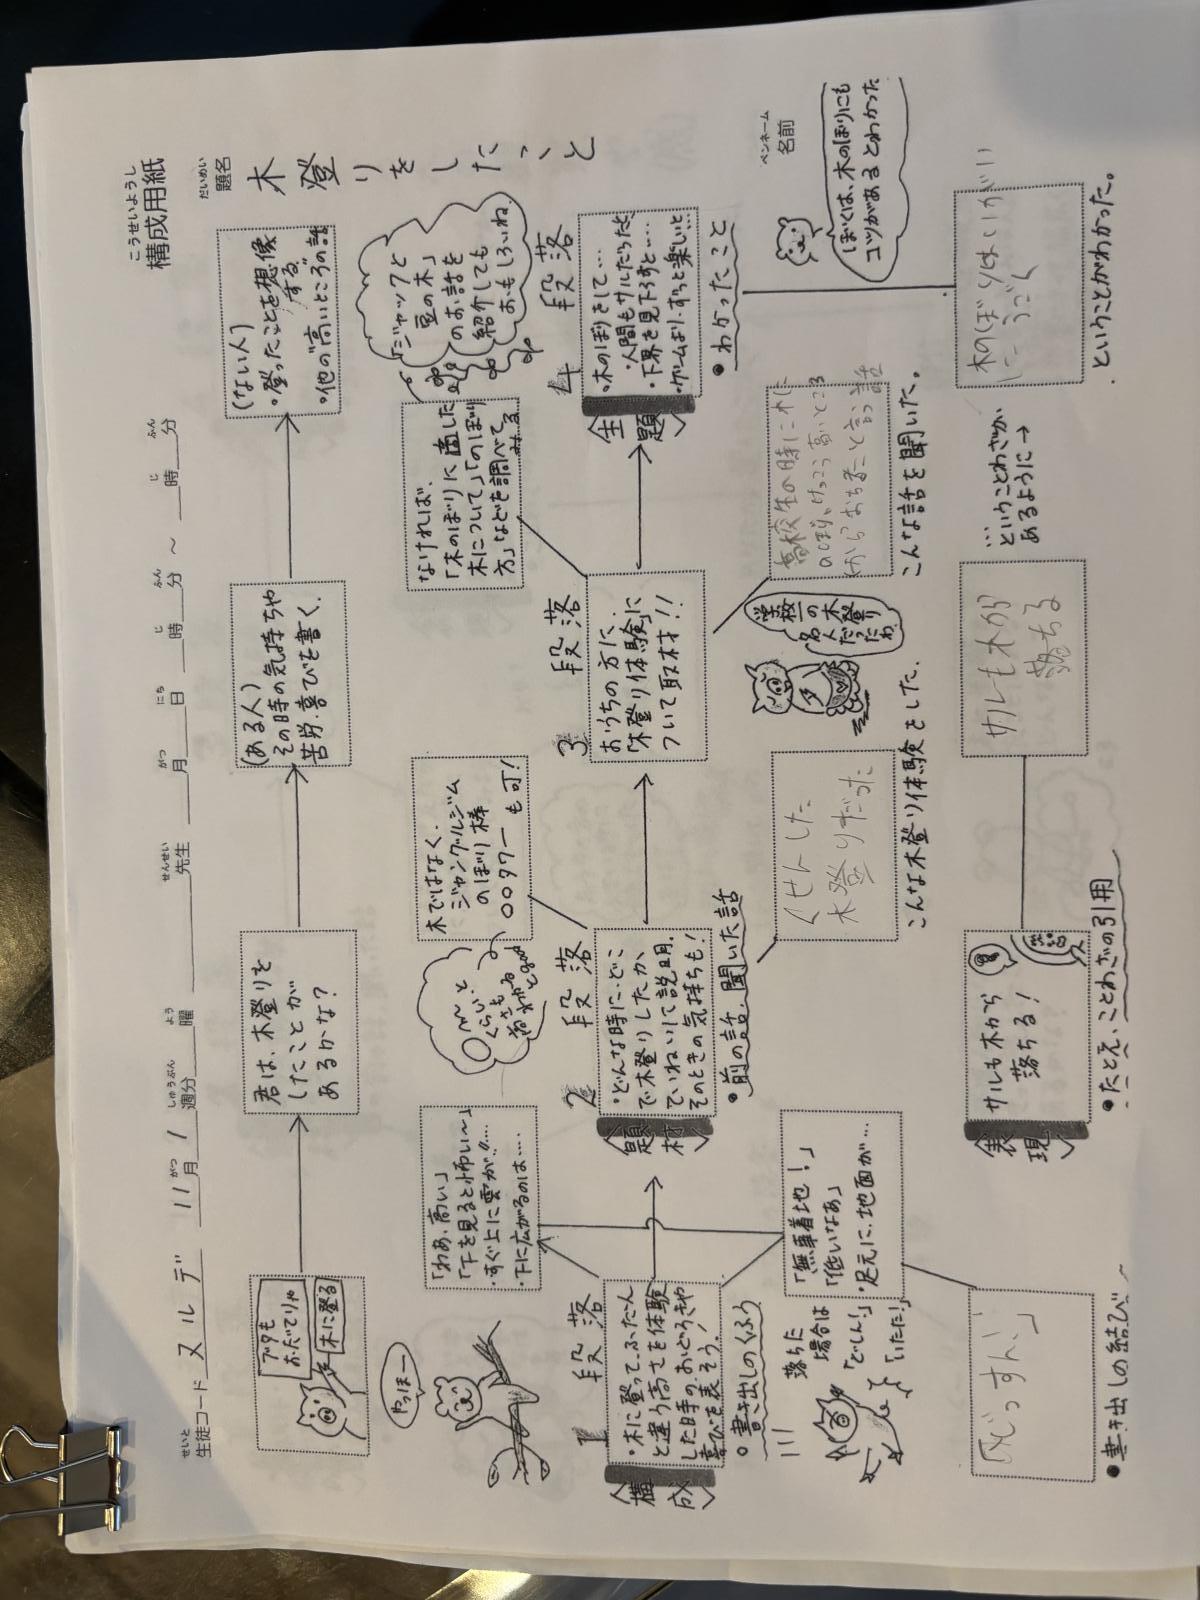 こうせいようし
構成用紙
せいと
生徒コード ヌルデ 11月 1週分 曜 先生 月 日 時 分 ～ 時 分
がつ しゅうぶん よう せんせい がつ にち じ ふん じ ふん
だいめい
題名
木登りをしたこと
ペンネーム
名前
ブタも
おだてりゃ
木に登る
君は、木登りを
したことが
あるかな?
(ある人)
その時の気持ちや
苦労・喜びを書く。
(ない人)
・登ったことを想像
する
・他の“高いところの話
やっほー
「わあ、高い」
「下を見ると怖い～」
・すぐ上に雲が…
・下に広がるのは…
木ではなく、
ジャングルジム
のぼり棒
〇〇タワー も可!
なければ、
「木のぼりに適した
木について」「のぼり
方」などを調べて
みる
「ジャックと
豆の木」
のお話を
紹介しても
おもしろいね。
1 段落
〈構成〉
・木に登って、ふだん
と違う高さを体験
した時の、おどろきや
喜びを表そう!
◎書き出しのくふう
2 段落
〈題材〉
・どんな時に、どこ
で木登りしたか、
ていねいに説明。
そのときの気持ちも!
●前の話、聞いた話
3 段落
おうちの方に、
「木登り体験」に
ついて取材!!
4 段落
〈主題〉
・木のぼりをして…
・人間もサルだったと
・下界を見下ろすと…
・ゲームより、ずっと楽しい…
●わかったこと
落ちた
場合は
「どしん!」
「いたた!」
「無事着地!」
「低いなあ」
・足元に、地面が…
くせんした
木登りだった
こんな木登り体験をした。
学校一の木登り
名人だったわ
高校生の時に木に
のぼり、けっこう高いところ
からおちまたこと言う話
こんな話を聞いた。
ぼくは、木のぼりにも
コツがあるとわかった
「どっすん!」
●書き出しの結び
〈表現〉
サルも木から
落ちる!
●たとえ、ことわざの引用
サルも木から
落ちる
…ということわざが
あるように→
木のぼりはいがいに
ということがわかった。